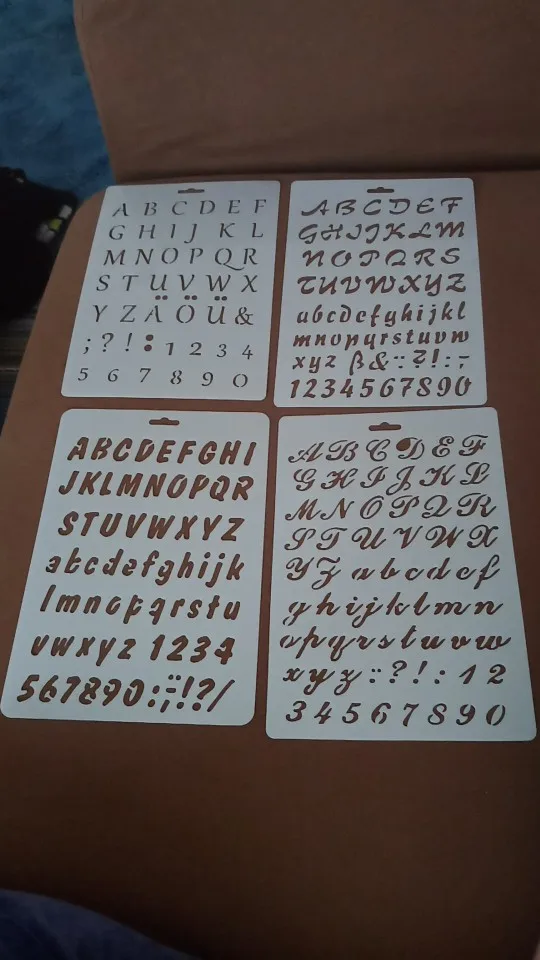 A B C D E F
G H I J K L
M N O P Q R
S T U V W X
Y Z Ä Ö Ü &
; ? ! : 1 2 3 4
5 6 7 8 9 0
A B C D E F
G H I J K L M
N O P Q R S
T U V W X Y Z
a b c d e f g h i j k l
m n o p q r s t u v w
x y z ß & : : ? ! : ; -
1 2 3 4 5 6 7 8 9 0
A B C D E F G H I
J K L M N O P Q R
S T U V W X Y Z
a b c d e f g h i j k
l m n o p q r s t u
v w x y z 1 2 3 4
5 6 7 8 9 0 : ; ¨ - ! ? /
A B C D E F
G H I J K L
M N O P Q R
S T U V W X
Y Z a b c d e f
g h i j k l m n
o p q r s t u v w
x y z : ? ! : 1 2
3 4 5 6 7 8 9 0